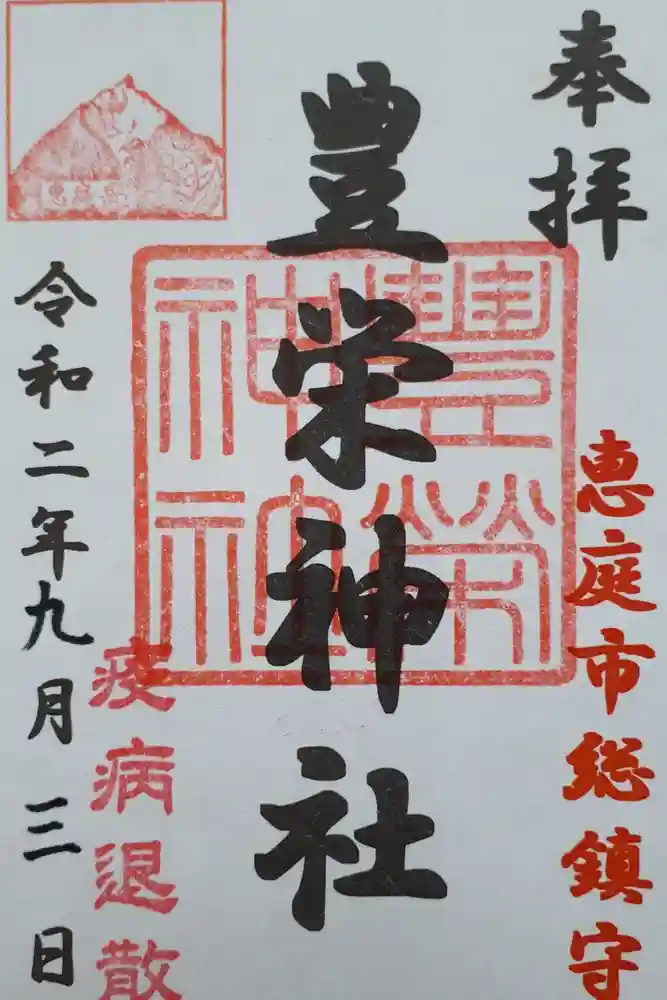 奉拝
恵庭市総鎮守
豊栄神社
豊栄神社
疫病退散
令和二年九月三日
恵庭岳